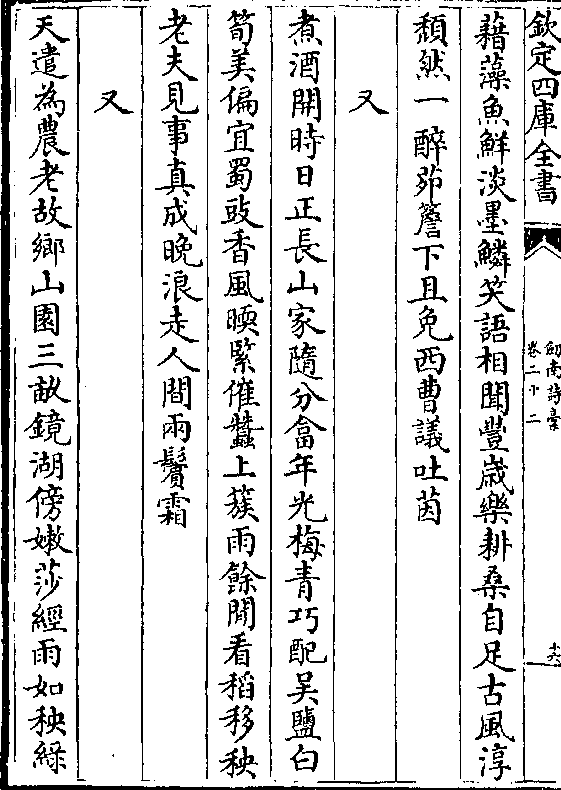 欽定四庫全書
劍南詩藁
卷二十二
十六
藉藻魚鮮淡墨鱗笑語相聞豐歲樂耕桑自足古風淳
頹然一醉茆簷下且免西曹議吐茵
又
煮酒開時日正長山家隨分畣年光梅青巧配吳鹽白
筍美偏宜蜀豉香風暖緊催蠶上蔟雨餘閒看稻移秧
老夫見事真成晚浪走人間兩鬢霜
又
天遣為農老故鄉山園三畝鏡湖傍嫩莎經雨如秧綠